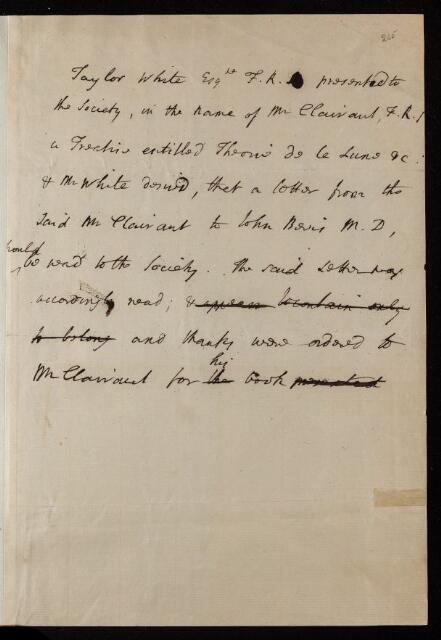 Taylor White Esqre F.R.S presented to
the Society, in the name of Mr Clairaut, F.R.S
a Treatise entitled Theorie de la Lune &c:
& Mr White desired, that a letter from the
said Mr Clairaut to John Bevis M.D,
should
be read to the Society. The said Letter was
accordingly read; & appears to contain only
to belong and thanks were ordered to
his
Mr Clairaut for the book presented